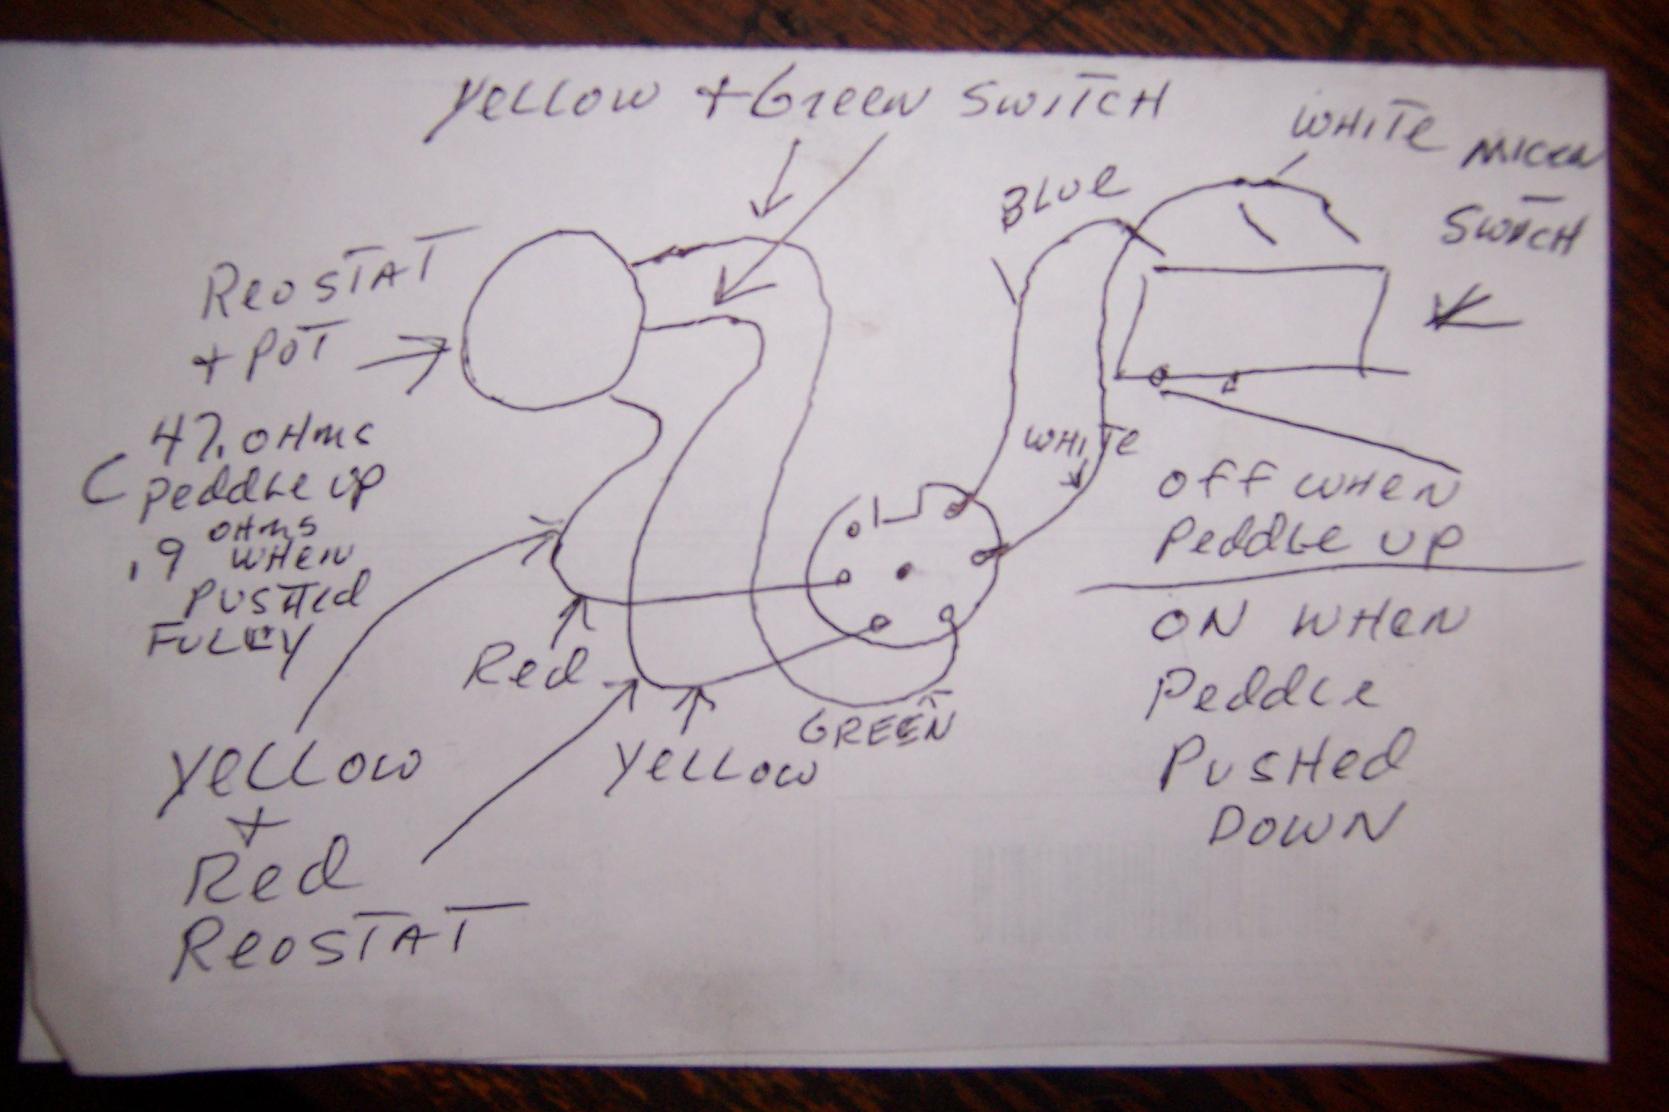 YELLOW + GREEN SWITCH
WHITE
MICRO
SWITCH
BLUE
REOSTAT
+ POT
47. OHMS
PEDDLE UP
.9 OHMS
WHEN
PUSHED
FULLY
WHITE
OFF WHEN
PEDDLE UP
ON WHEN
PEDDLE
PUSHED
DOWN
Red
YELLOW
GREEN
YELLOW
+
Red
REOSTAT